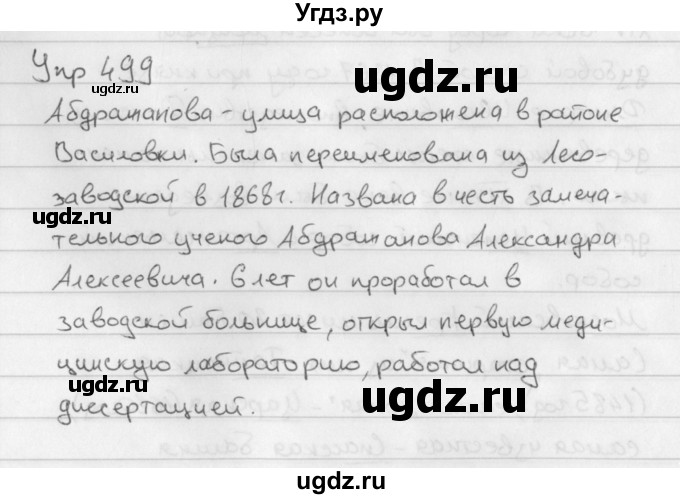 Угдз.ру
Упр 499
Абдраманова - улица расположена в районе
Василовки. Была переименована из Лесо-
заводской в 1868г. Названа в честь замеча-
тельного ученого Абдраманова Александра
Алексеевича. 6 лет он проработал в
заводской больнице, открыл первую меди-
цинскую лабораторию, работал над
диссертацией.
ugdz.ru
ugdz.ru
ugdz.ru
ugdz.ru
ugdz.ru
ugdz.ru
ugdz.ru
ugdz.ru